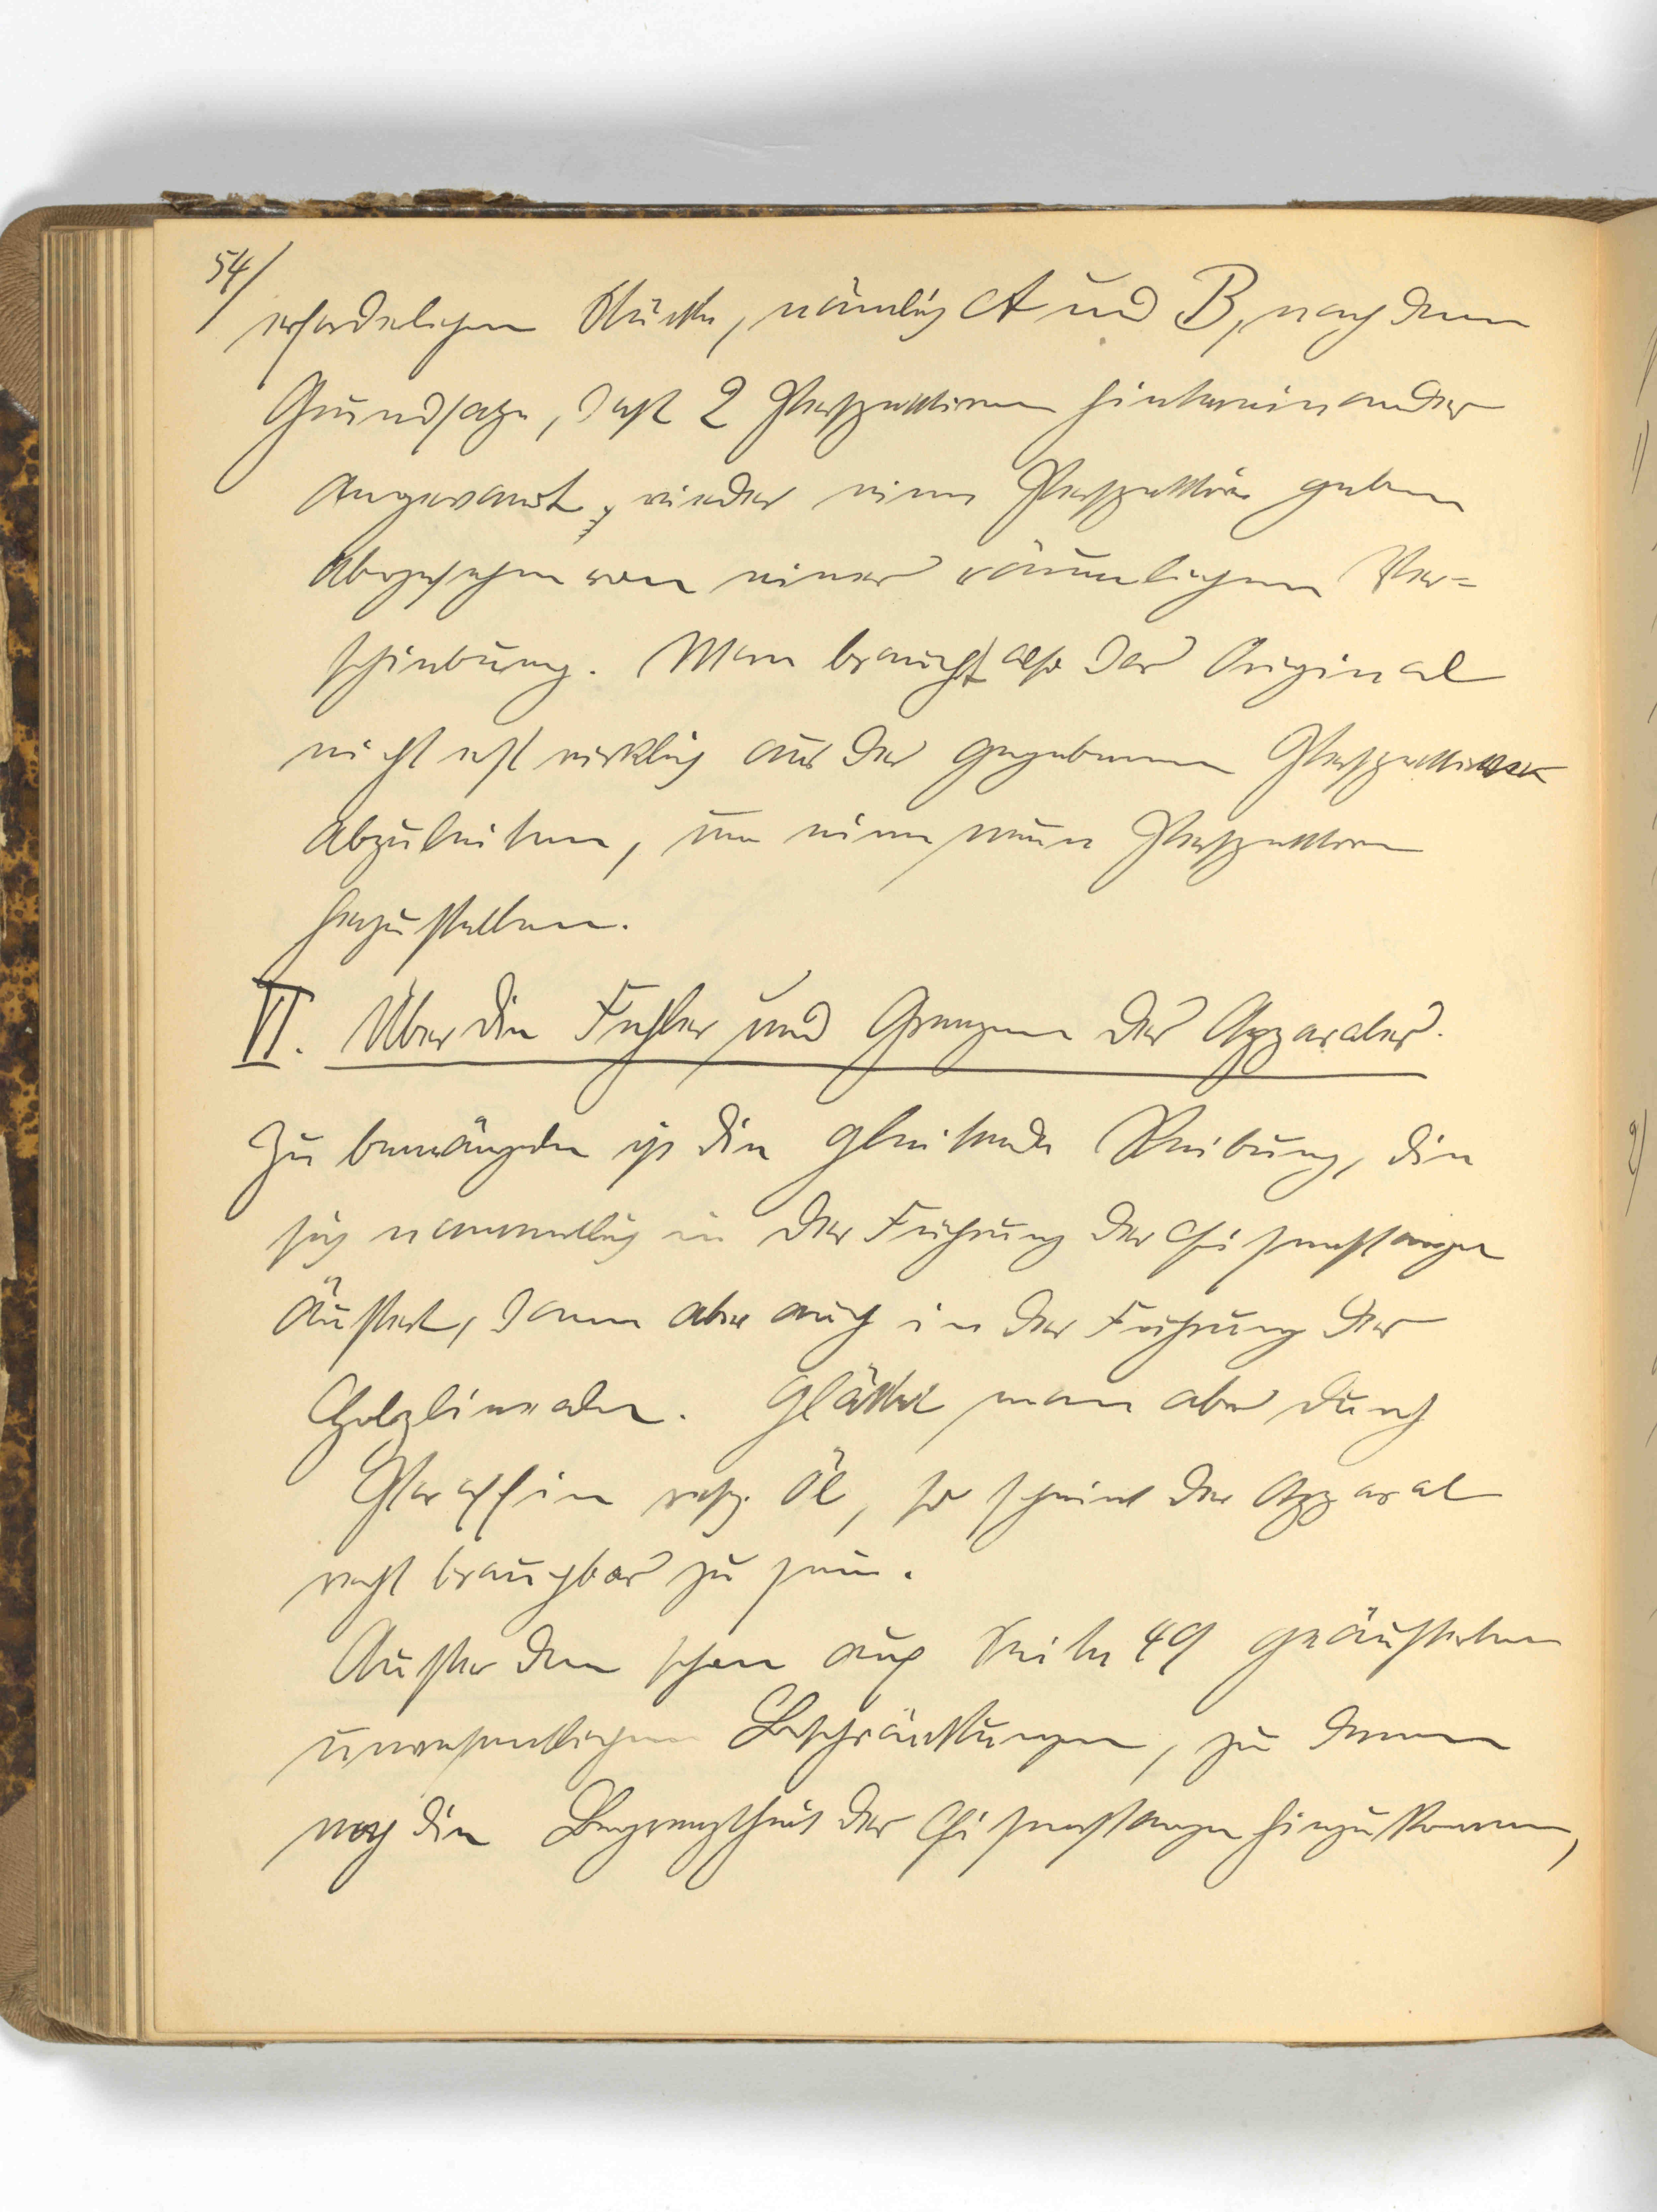 54/
erforderlichen Stücke, nämlich A und B, nach dem
Grundsatze, daß 2 Perspektiven hintereinander
angewandt, wieder eine Perspektive geben
abgesehen von einer räumlichen Ver=
schiebung. Man braucht also das Original
nicht erst wirklich aus der gegebenen Perspektive
abzuleiten, um eine neue Perspektive
herzustellen.
VI. Über die Fehler und Grenzen des Apparates.
Zu bemängeln ist die gleitende Reibung, die
sich namentlich in der Führung der Eisenstangen
äußert, dann aber auch in der Führung der
Holzlineale. Glättet man aber durch
Paraffin resp. Öl, so scheint der Apparat
recht brauchbar zu sein.
Außer den schon auf Seite 49 geäußerten
unwesentlichen Beschränkungen, zu denen
noch die Begrenztheit der Eisenstangen hinzukommt,
1)
2)